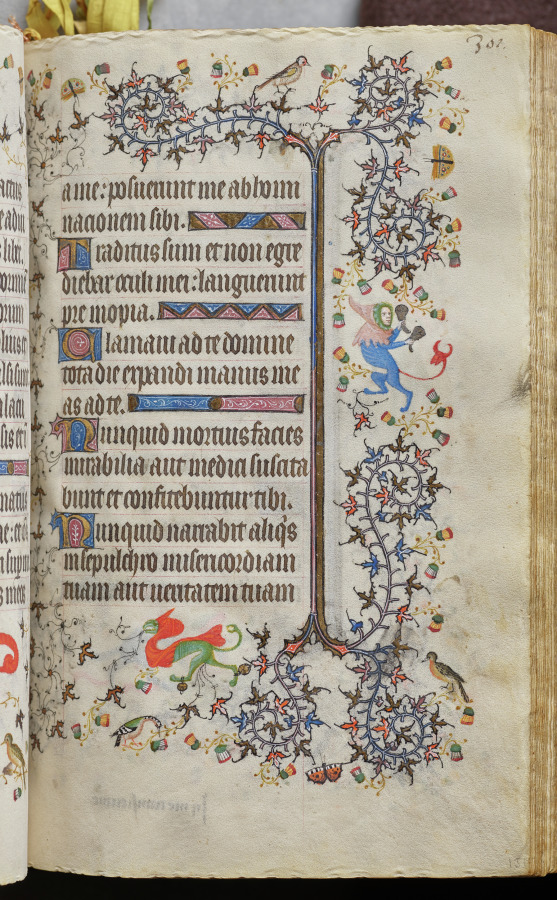 301.
a me: posuerunt me abhomi
nacionem sibi.
Traditus sum et non egre
diebar oculi mei: languerunt
pre inopia.
Clamaui ad te domine
tota die expandi manus me
as ad te.
Nunquid mortuis facies
mirabilia aut medici suscita
bunt et confitebuntur tibi.
Nunquid narrabit aliqs
in sepulchro misericordiam
tuam aut ueritatem tuam